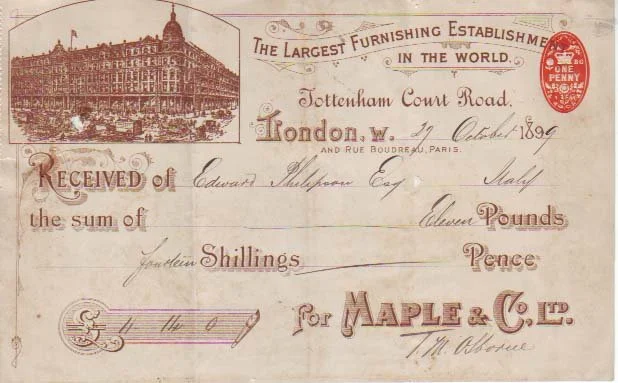 THE LARGEST FURNISHING ESTABLISHME
IN THE WORLD.
ONE
PENNY
Tottenham Court Road.
London, W. 27 October 1899
AND RUE BOUDREAU, PARIS.
RECEIVED of Edward Philipson Esq
the sum of Eleven Pounds
fourteen Shillings Pence
£ 11 14 0 for MAPLE & CO, LTD.
T. M. Osborne